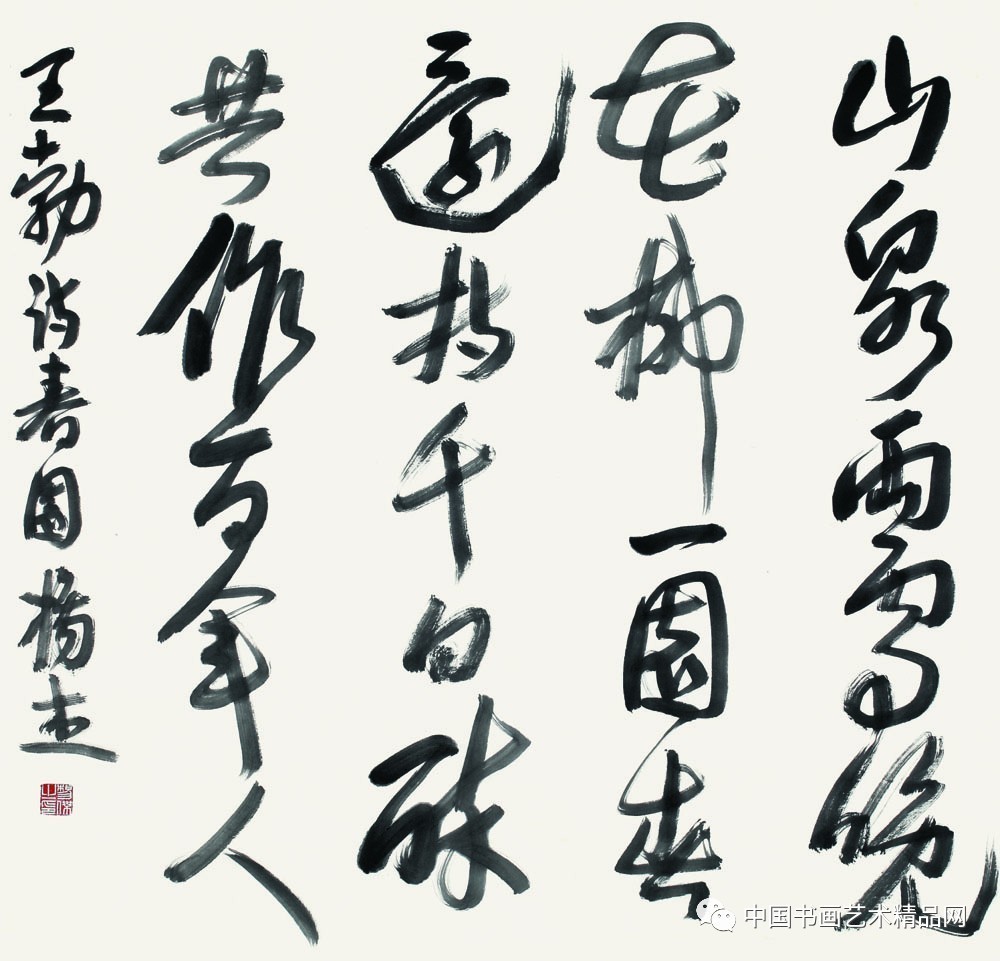 山泉兩處晚
花柳一園春
還持千日醉
共作百年人
王勃詩春園 楊杰
中国书画艺术精品网